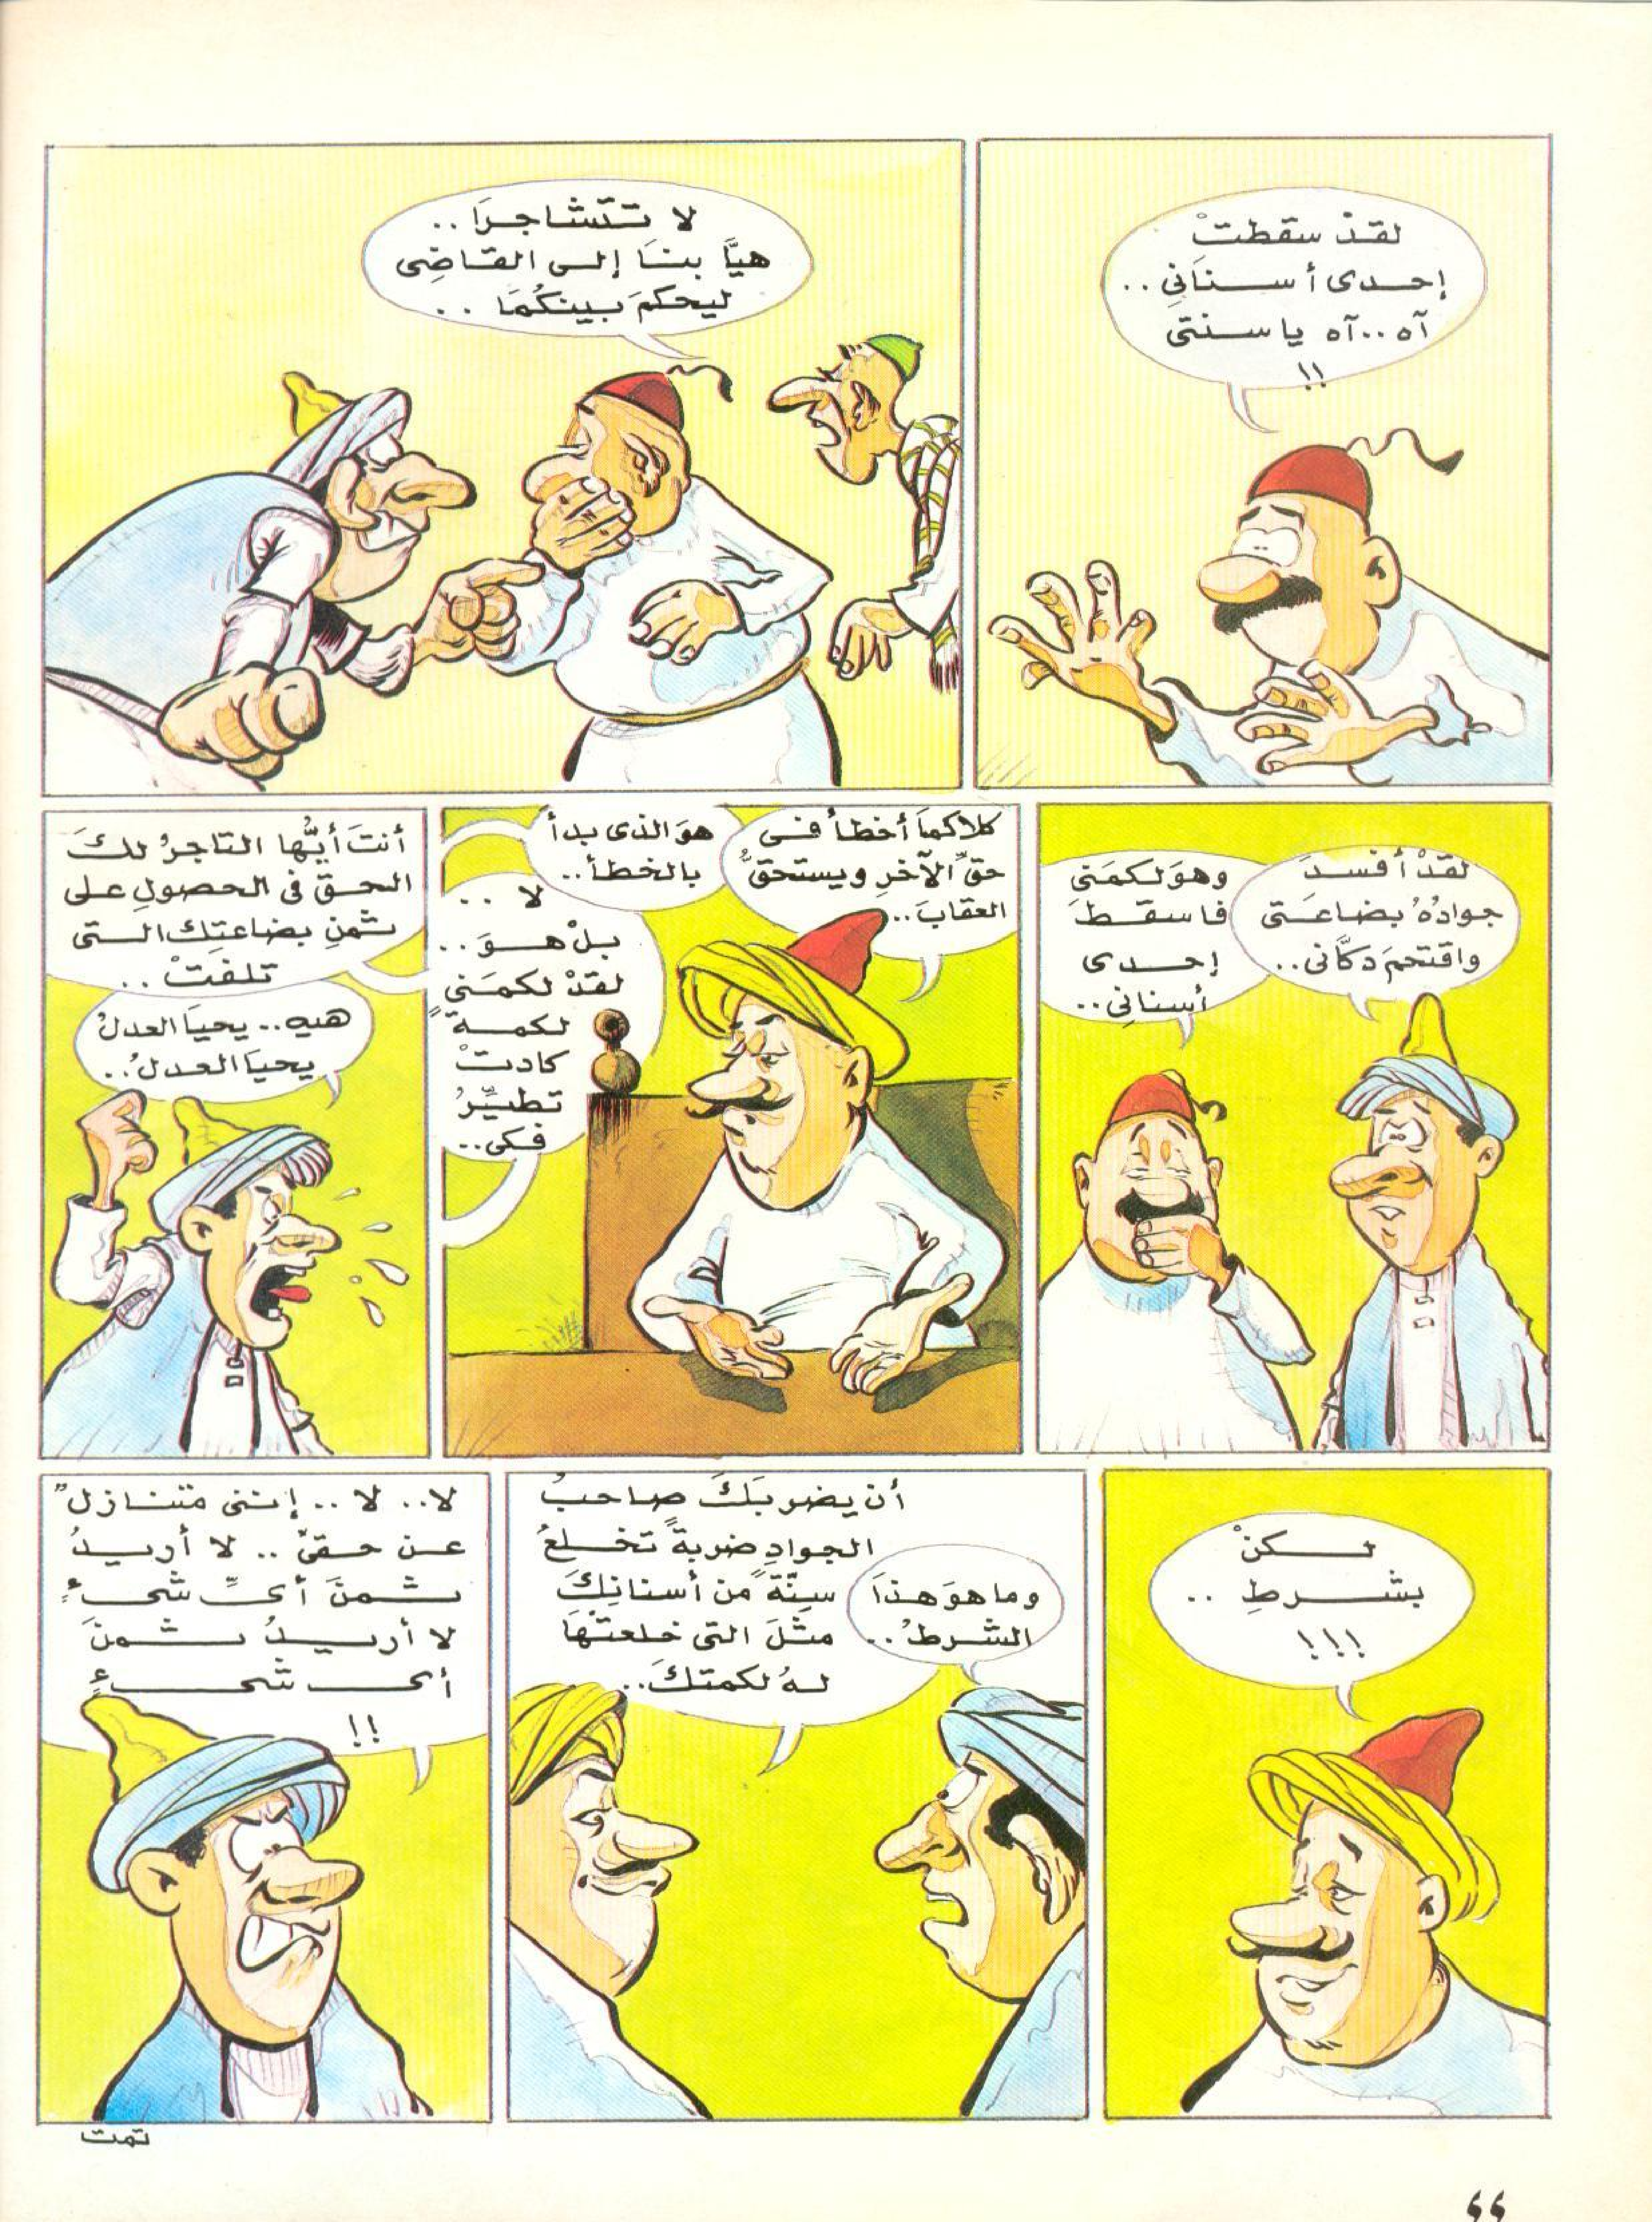 لقدْ سقطتْ
إحدى أسنانِى ..
آه .. آه ياسنتى
!!
لا تتشاجرَا ..
هيَّا بنَا إلى القاضِى
ليحكمَ بينكُمَا ..
لقدْ أفسدَ
جوادُهُ بضاعَتى
واقتحمَ دكَّانى ..
وهوَ لكمَنِى
فاسقطَ
إحدى
أسنانِى ..
كلاكمَا أخطأ فى
حقِّ الآخرِ ويستحقُّ
العقابَ ..
هوَ الذى بدأ
بالخطأ ..
لا ..
بلْ هوَ ..
لقدْ لكمَنى
لكمةً
كادتْ
تطيِّرُ
فكى ..
أنتَ أيُّها التاجرُ لكَ
الحقَّ فى الحصولِ على
ثمنِ بضاعتِكِ التى
تلفتْ ..
هيه .. يحيَا العدلُ
يحيَا العدلُ ..
لكنْ
بشرطِ ..
!!!
وما هوَ هذَا
الشرطُ ..
أن يضربَكَ صاحبُ
الجوادِ ضربةً تخلعُ
سِنّةً من أسنانِكَ
مثلَ التى خلعتْهَا
لهُ لكمتكَ ..
لا .. لا .. إننى متنازلٌ
عن حقىِّ .. لا أريدُ
ثمنَ أىِّ شىءٍ
لا أريدُ ثمنَ
أى شىءٍ
!!
تمت
٦٦